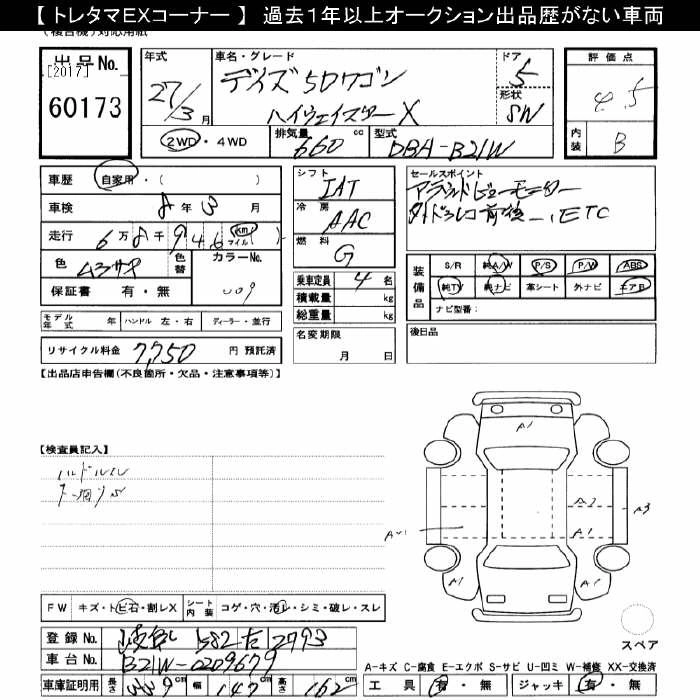 【 トレタマＥＸコーナー 】 過去１年以上オークション出品歴がない車両
(複合機)対応用紙
出 品 No.
[2017]
60173
年式
27/3月
車名・グレード
デイズ 5Dワゴン
ハイウェイスター X
ドア
5
形状
SW
評 価 点
4.5
内装
B
2WD ・ 4WD
排気量
660 cc
型式
DBA-B21W
車歴 自家用・( )
車検 8 年 3 月
走行 6 万 8 千 9 4 6 km マイル ( )
色
色替
カラーNo.
保証書 有・無
シフト
IAT
冷 房
AAC
燃 料
G
乗車定員 4 名
積載量 kg
総重量 kg
セールスポイント
アラウンドビューモニター
前後 ETC
装備品
S/R 純A/W P/S P/W ABS
純TV 純ナビ 革シート 外ナビ エアB
ナビ型番:
モデル年式 年 ハンドル 左・右 ディーラー・並行
名変期限
月 日
後日品
リサイクル料金 7,750 円 預託済
【出品店申告欄(不良箇所・欠品・注意事項等)】
【検査員記入】
A1
A2
A1
A3
A1
A1
FW キズ・トビ石・割レX シート内装 コゲ・穴・汚レ・シミ・破レ・スレ
スペア
登録 No. 582 2793
車台 No. B21W-0209679
A-キズ C-腐食 E-エクボ S-サビ U-凹ミ W-補修 XX-交換済
車庫証明用 長さ 339 cm 幅 147 cm 高さ 162 cm
工 具 有・無 ジャッキ 有・無